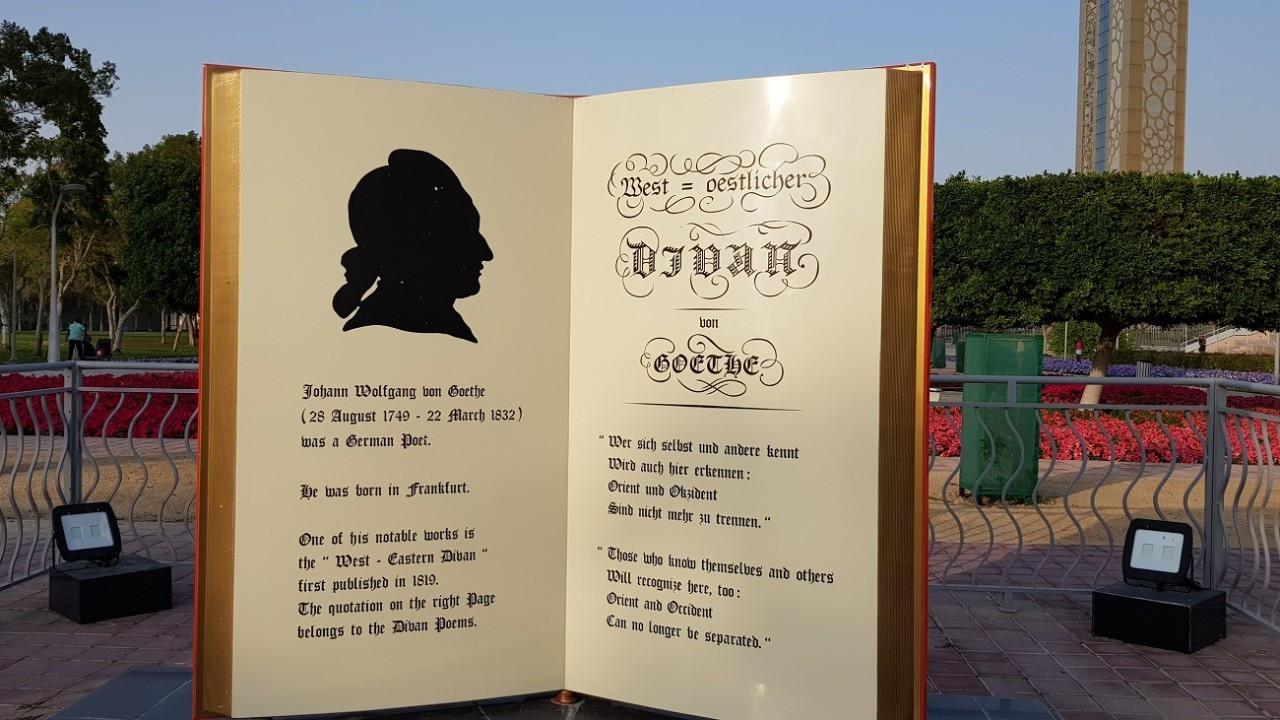 Johann Wolfgang von Goethe
(28 August 1749 - 22 March 1832)
was a German Poet.
He was born in Frankfurt.
One of his notable works is
the " West - Eastern Divan "
first published in 1819.
The quotation on the right Page
belongs to the Divan Poems.
West = oestlicher
DIVAN
von
GOETHE
" Wer sich selbst und andere kennt
Wird auch hier erkennen :
Orient und Okzident
Sind nicht mehr zu trennen. "
" Those who know themselves and others
Will recognize here, too :
Orient and Occident
Can no longer be separated. "